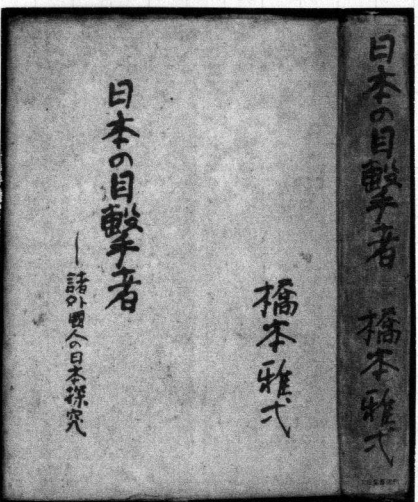 日本の目撃者
―諸外國人の日本探究
橋本雅弌
日本の目撃者
橋本雅弌